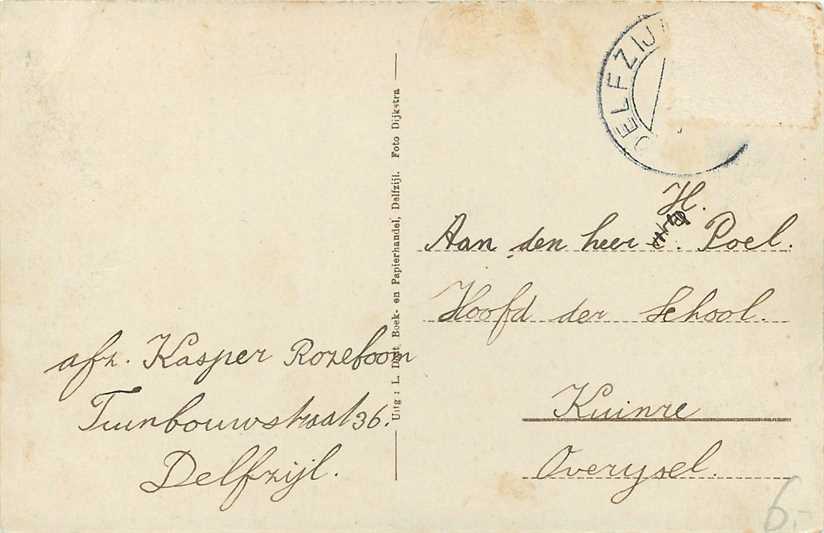 DELFZIJ
Aan den heer H. Poel.
Hoofd der School.
Kuinre
Overysel.
afz. Kasper Rozeboom
Tuinbouwstraat 36.
Delfzijl.
Uitg: L. Boek- en Papierhandel, Delfzijl. Foto Dijkstra
6.-